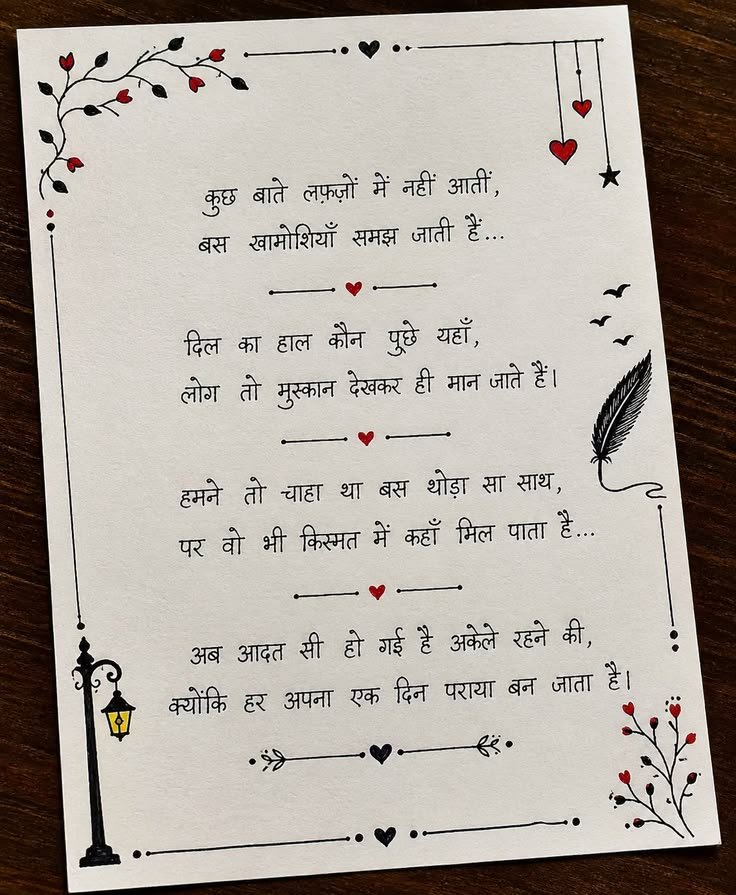 कुछ बाते लफ़्ज़ों में नहीं आतीं,
बस खामोशियाँ समझ जाती हैं...
दिल का हाल कौन पुछे यहाँ,
लोग तो मुस्कान देखकर ही मान जाते हैं।
हमने तो चाहा था बस थोड़ा सा साथ,
पर वो भी किस्मत में कहाँ मिल पाता है...
अब आदत सी हो गई है अकेले रहने की,
क्योंकि हर अपना एक दिन पराया बन जाता है।